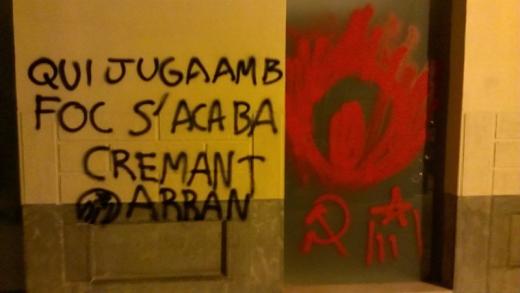 QUI JUGA AMB
FOC S'ACABA
CREMANT
ARRAN